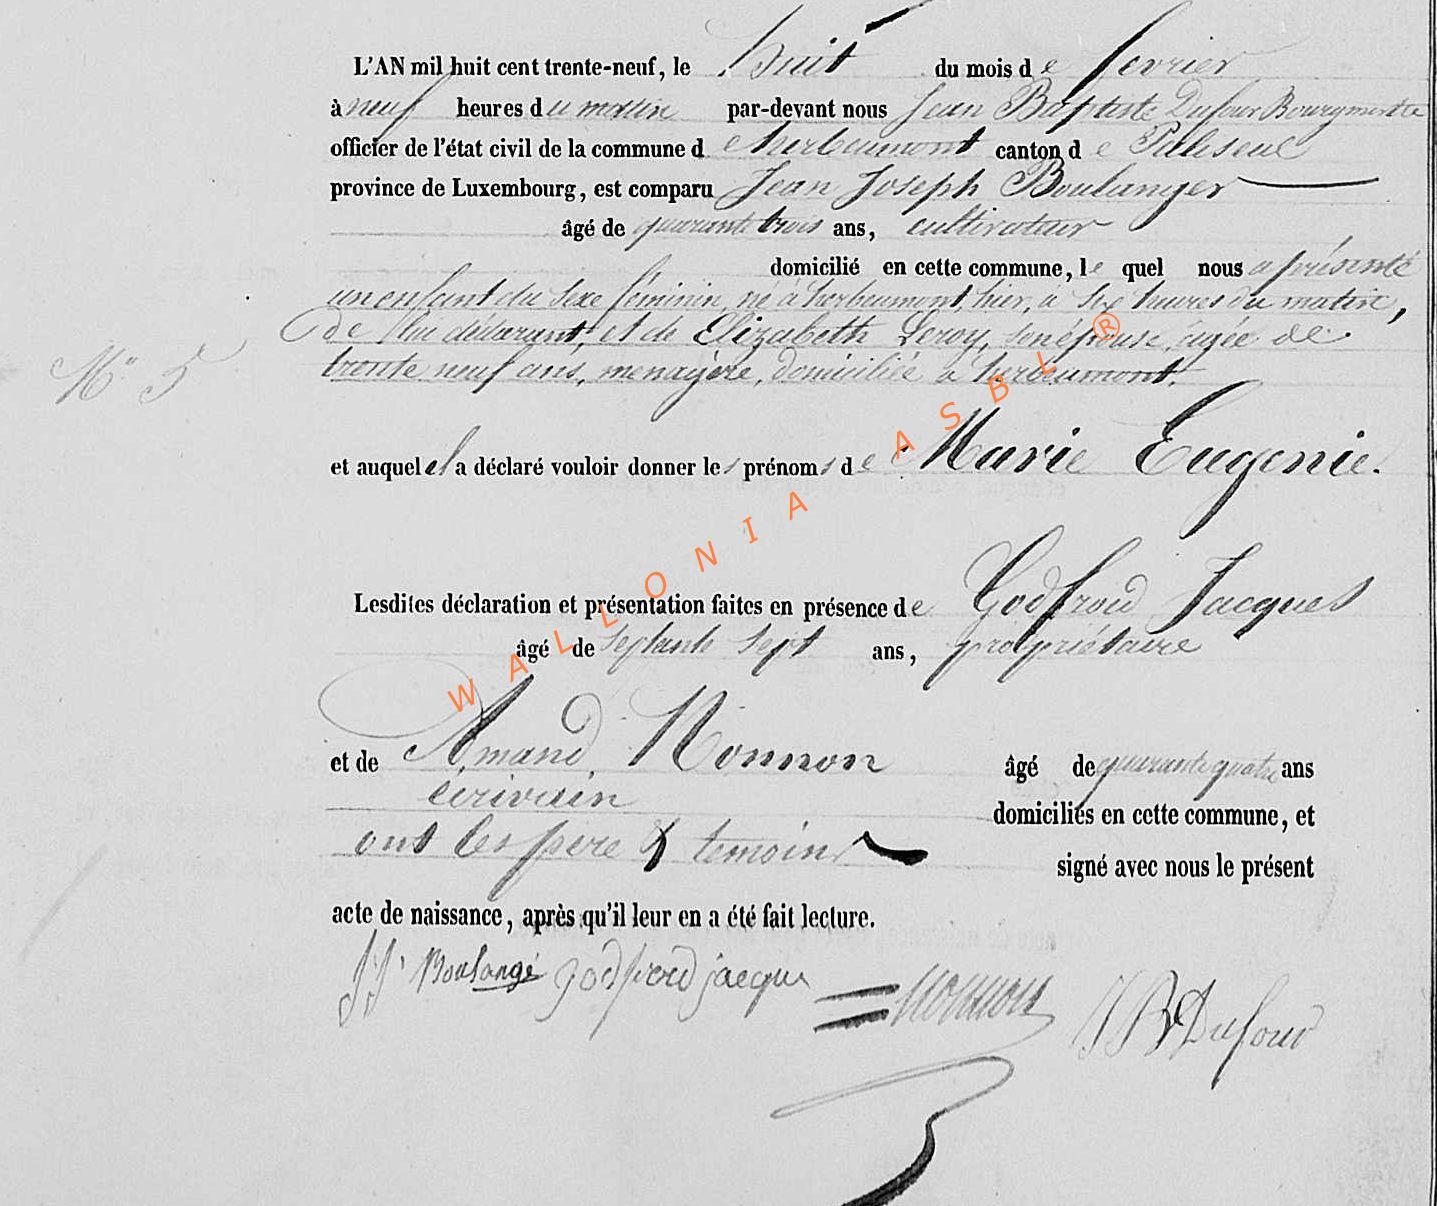 L'AN mil huit cent trente-neuf, le huit du mois de fevrier
à neuf heures du matin par-devant nous Jean Baptiste Dufour Bourgmestre
officier de l'état civil de la commune d e herbeumont canton de Paliseul
province de Luxembourg, est comparu Jean Joseph Boulanger
âgé de quarante trois ans, cultivateur
domicilié en cette commune, le quel nous a présenté
un enfant du sexe féminin, né à herbeumont, hier, à six heures du matin,
de lui déclarant, et de Elizabeth Leroy, son épouse, agée de
N° 5
trente neuf ans, menagère, domiciliée à herbeumont.
et auquel el a déclaré vouloir donner les prénoms de Marie Eugenie.
Lesdites déclaration et présentation faites en présence de Godfroid Jacques
âgé de septante sept ans, propriétaire
et de Amand Nonnon âgé de quarante quatre ans
écrivain
domiciliés en cette commune, et
ont les pere & temoins
signé avec nous le présent
acte de naissance, après qu'il leur en a été fait lecture.
JJ Boulangé godfroid jacque Nonnon JB Dufour
WALLONIA ASBL ®